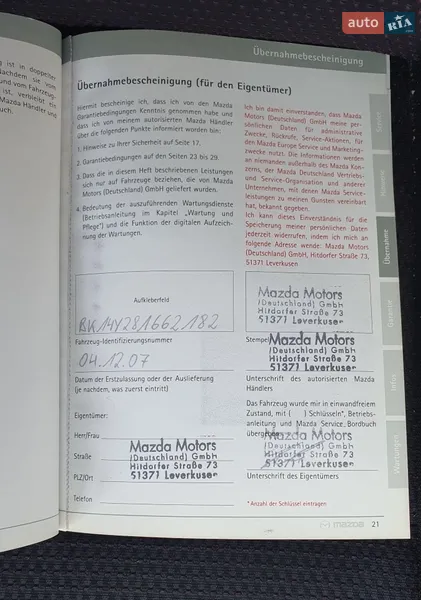 auto RIA.com
Übernahmebescheinigung
ist in doppelter
Nachdem sie vom
und vom Fahrzeug-
ist, verbleibt ein
Mazda Händler und
Übernahmebescheinigung (für den Eigentümer)
Hiermit bescheinige ich, dass ich von den Mazda
Garantiebedingungen Kenntnis genommen habe und
dass ich von meinem autorisierten Mazda Händler
über die folgenden Punkte informiert worden bin:
1. Hinweise zu Ihrer Sicherheit auf Seite 17.
2. Garantiebedingungen auf den Seiten 23 bis 29.
3. Dass die in diesem Heft beschriebenen Leistungen
sich nur auf Fahrzeuge beziehen, die von Mazda
Motors (Deutschland) GmbH geliefert wurden.
4. Bedeutung der auszuführenden Wartungsdienste
(Betriebsanleitung im Kapitel „Wartung und
Pflege") und die Funktion der digitalen Aufzeich-
nung der Wartungen.
Ich bin damit einverstanden, dass Mazda
Motors (Deutschland) GmbH meine per-
sönlichen Daten für administrative
Zwecke, Rückrufe, Service-Aktionen, für
den Mazda Europe Service und Marketing-
zwecke nutzt. Die Informationen werden
an niemanden außerhalb des Mazda Kon-
zerns, der Mazda Deutschland Vertriebs-
und Service-Organisation und anderer
Unternehmen, mit denen Mazda Service-
leistungen zu meinen Gunsten vereinbart
hat, bekannt gegeben.
Ich kann dieses Einverständnis für die
Speicherung meiner persönlichen Daten
jederzeit widerrufen, indem ich mich an
folgende Adresse wende: Mazda Motors
(Deutschland) GmbH, Hitdorfer Straße 73,
51371 Leverkusen
Aufkleberfeld
BK14Y281662182
Fahrzeug-Identifizierungsnummer
04.12.07
Datum der Erstzulassung oder der Auslieferung
(je nachdem, was zuerst eintritt)
Mazda Motors
(Deutschland) GmbH
Hitdorfer Straße 73
51371 Leverkusen
Stempel
Mazda Motors
(Deutschland) GmbH
Hitdorfer Straße 73
51371 Leverkusen
Unterschrift des autorisierten Mazda
Händlers
Das Fahrzeug wurde mir in einwandfreiem
Zustand, mit ( ) Schlüsseln*, Betriebs-
anleitung und Mazda Service Bordbuch
übergeben.
Mazda Motors
(Deutschland) GmbH
Hitdorfer Straße 73
51371 Leverkusen
Unterschrift des Eigentümers
Eigentümer:
Herr/Frau
Straße
PLZ/Ort
Telefon
Mazda Motors
(Deutschland) GmbH
Hitdorfer Straße 73
51371 Leverkusen
* Anzahl der Schlüssel eintragen
mazda 21
Übernahme
Garantie
Infos
Wartungen